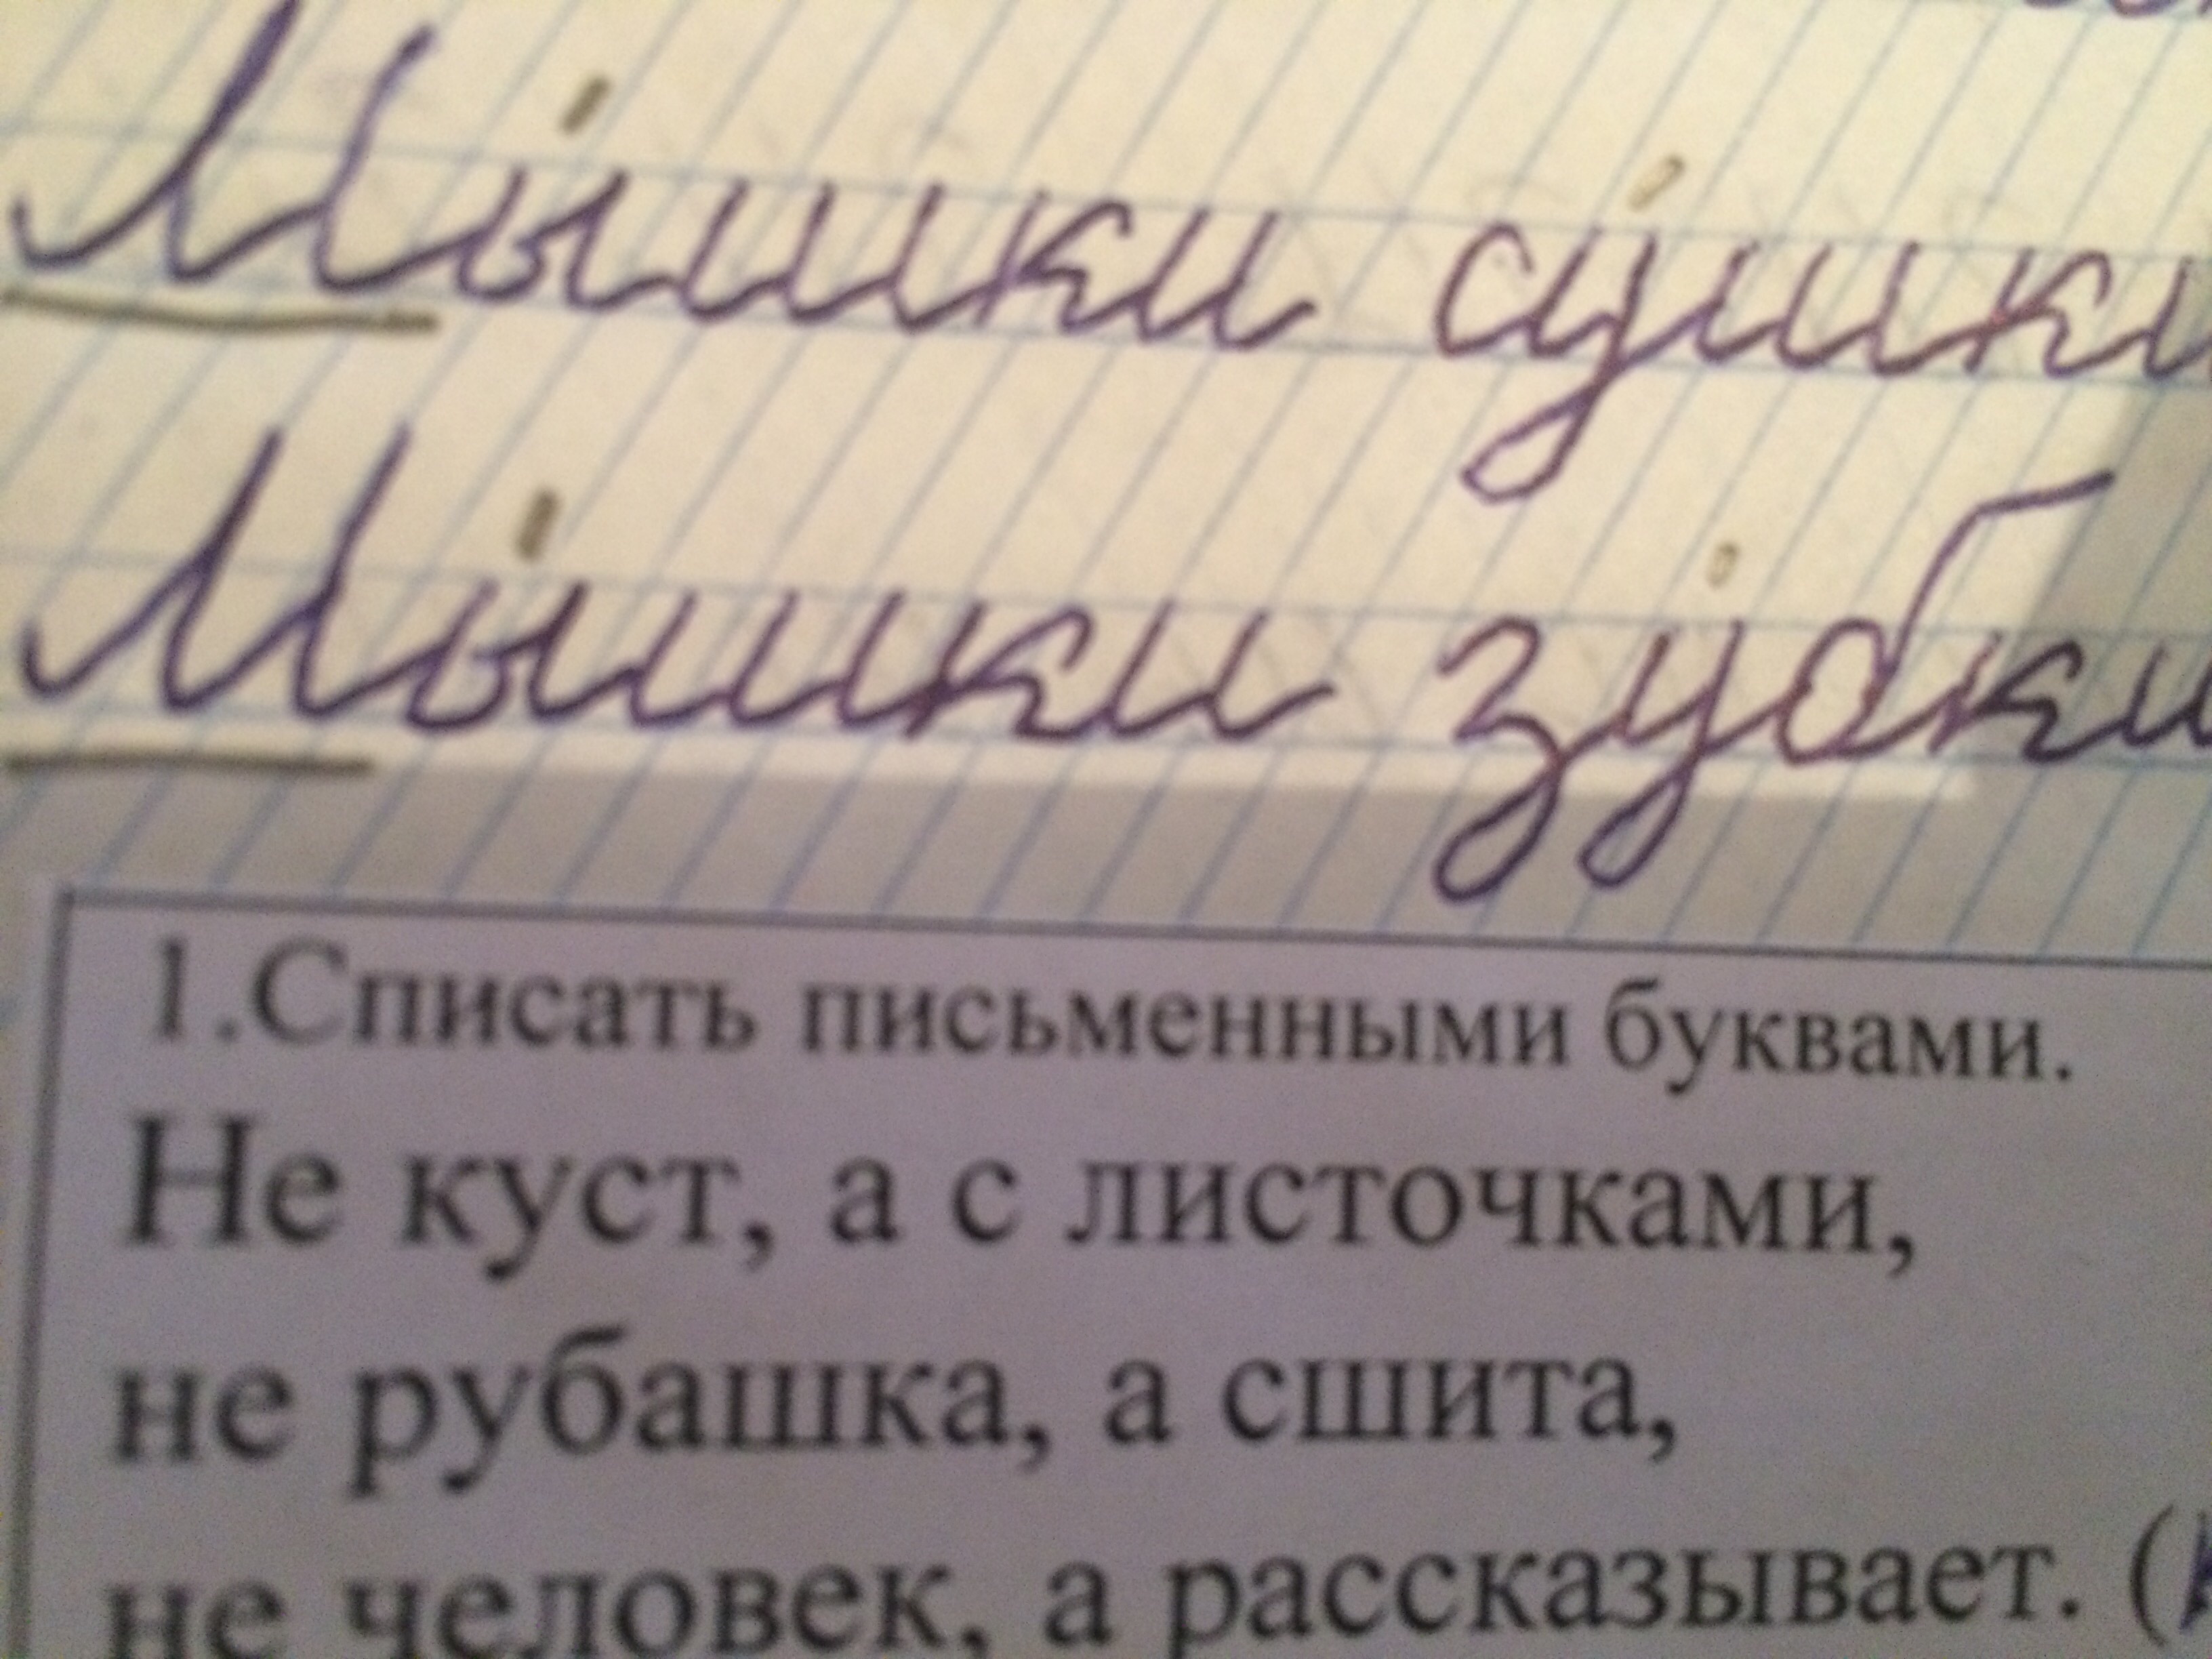 Мышки сушки
Мышки зубки
1.Списать письменными буквами.
Не куст, а с листочками,
не рубашка, а сшита,
не человек, а рассказывает. (